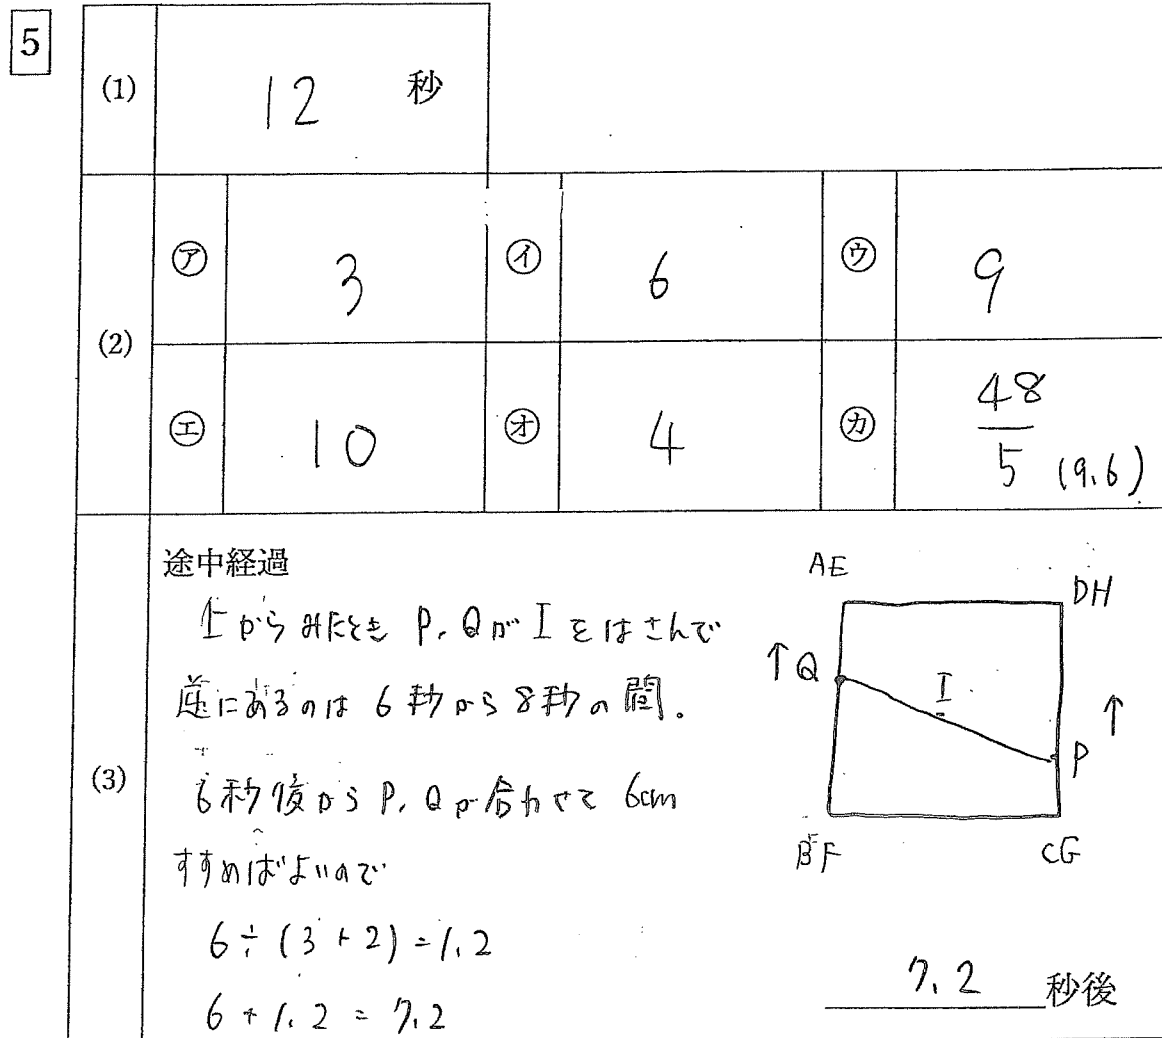 5
(1) 12 秒
(2) ㋐ 3 ㋑ 6 ㋒ 9
㋓ 10 ㋔ 4 ㋕ 48/5 (9.6)
(3) 途中経過
上からみたとき P, Q が I をはさんで
逆にあるのは 6秒から8秒の間.
6秒後から P, Q が合わせて 6cm
すすめばよいので
6÷(3+2)=1.2
6+1.2=7.2
AE
DH
↑Q
I
↑
P
BF
CG
7.2 秒後